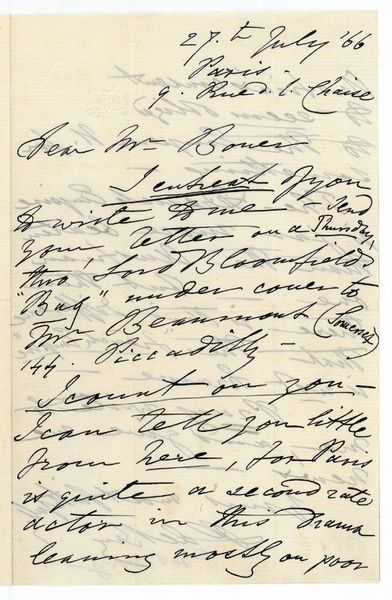 27.th July '66
Paris -
9. Rue d. l. Chaise
Dear Mr Boner
I entreat of you
to write to me - Send
your letter on a Thursday,
thro' Lord Bloomfield's
"Bag" under cover to
Mr Beaumont (Somerset)
144. Piccadilly -
I count on you -
I can tell you little
from here, for Paris
is quite a second rate
actor in this drama
leaning mostly on poor